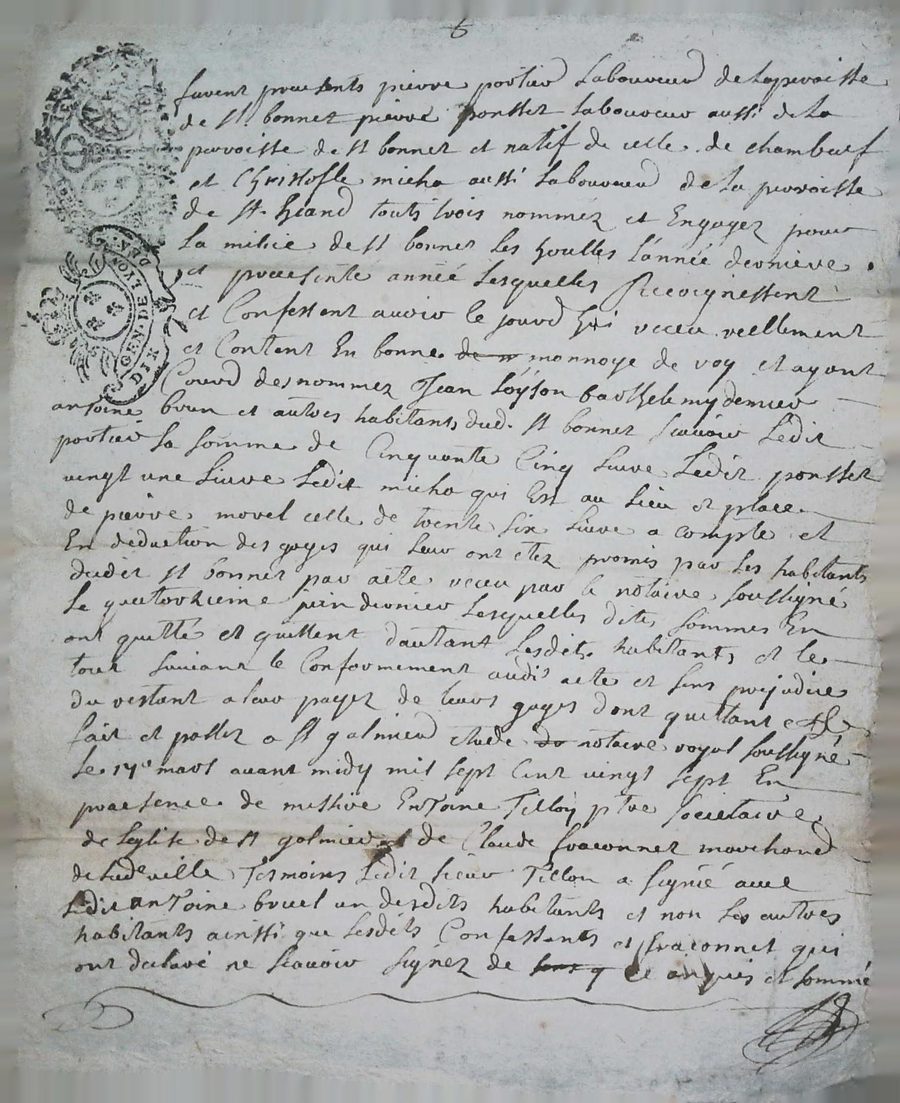 6
GEN. DE LYON
furent presents pierre portier Laboureur de Laparoisse
de St bonnet pierre ponsset Laboureur aussi de La
parroisse de st bonnet et natif de celle de chambeuf
et Christofle micha aussi Laboureur de La parroisse
de St heand touts trois nommez et Engagez pour
La milice de st bonnet Les houlles Lannée derniere
et presente année Lesquelles Recoignessent
et Confessent avoir le jourd hui receu reellement
et Contant En bonne monnoye de roy et ayant
Courd des nommez Jean Loyson barthelemy dernier
antoine brun et autres habitants dud. st bonnet scavoir Ledit
portier La somme de Cinquante Cinq Livre Ledit ponsset
vingt une Livre Ledit micha qui Est au Lieu et place
de pierre morel celle de trente six Livre a compte et
En deduction des gages qui Leur ont etez promis par Les habitants
dudit st bonnet par acte receu par le notaire soussigné
Le quatorzieme juin dernier Lesquelles dites sommes En
ont quitté et quittent dautant Lesdits habitants et le
tout suivant le Conformement audit acte et sans prejudice
du restant a leur payez de leurs gages dont quittant
fait et passez a st galmier etude notaire royal soussigné
Le 17e mars avant midy mil sept Cent vingt sept En
praesence de messire Entoine Tillon ptre societaire
de Leglise de st galmier et de Claude fraconnet marchand
de Ladeville Tesmoins Ledit sieur Tillon a signé avec
Ledit antoine bruel un desdits habitants et non Les autres
habitants ainssi que Lesdits Confessents et fraconnet qui
ont declaré ne scavoir signez de ce enquis et sommé